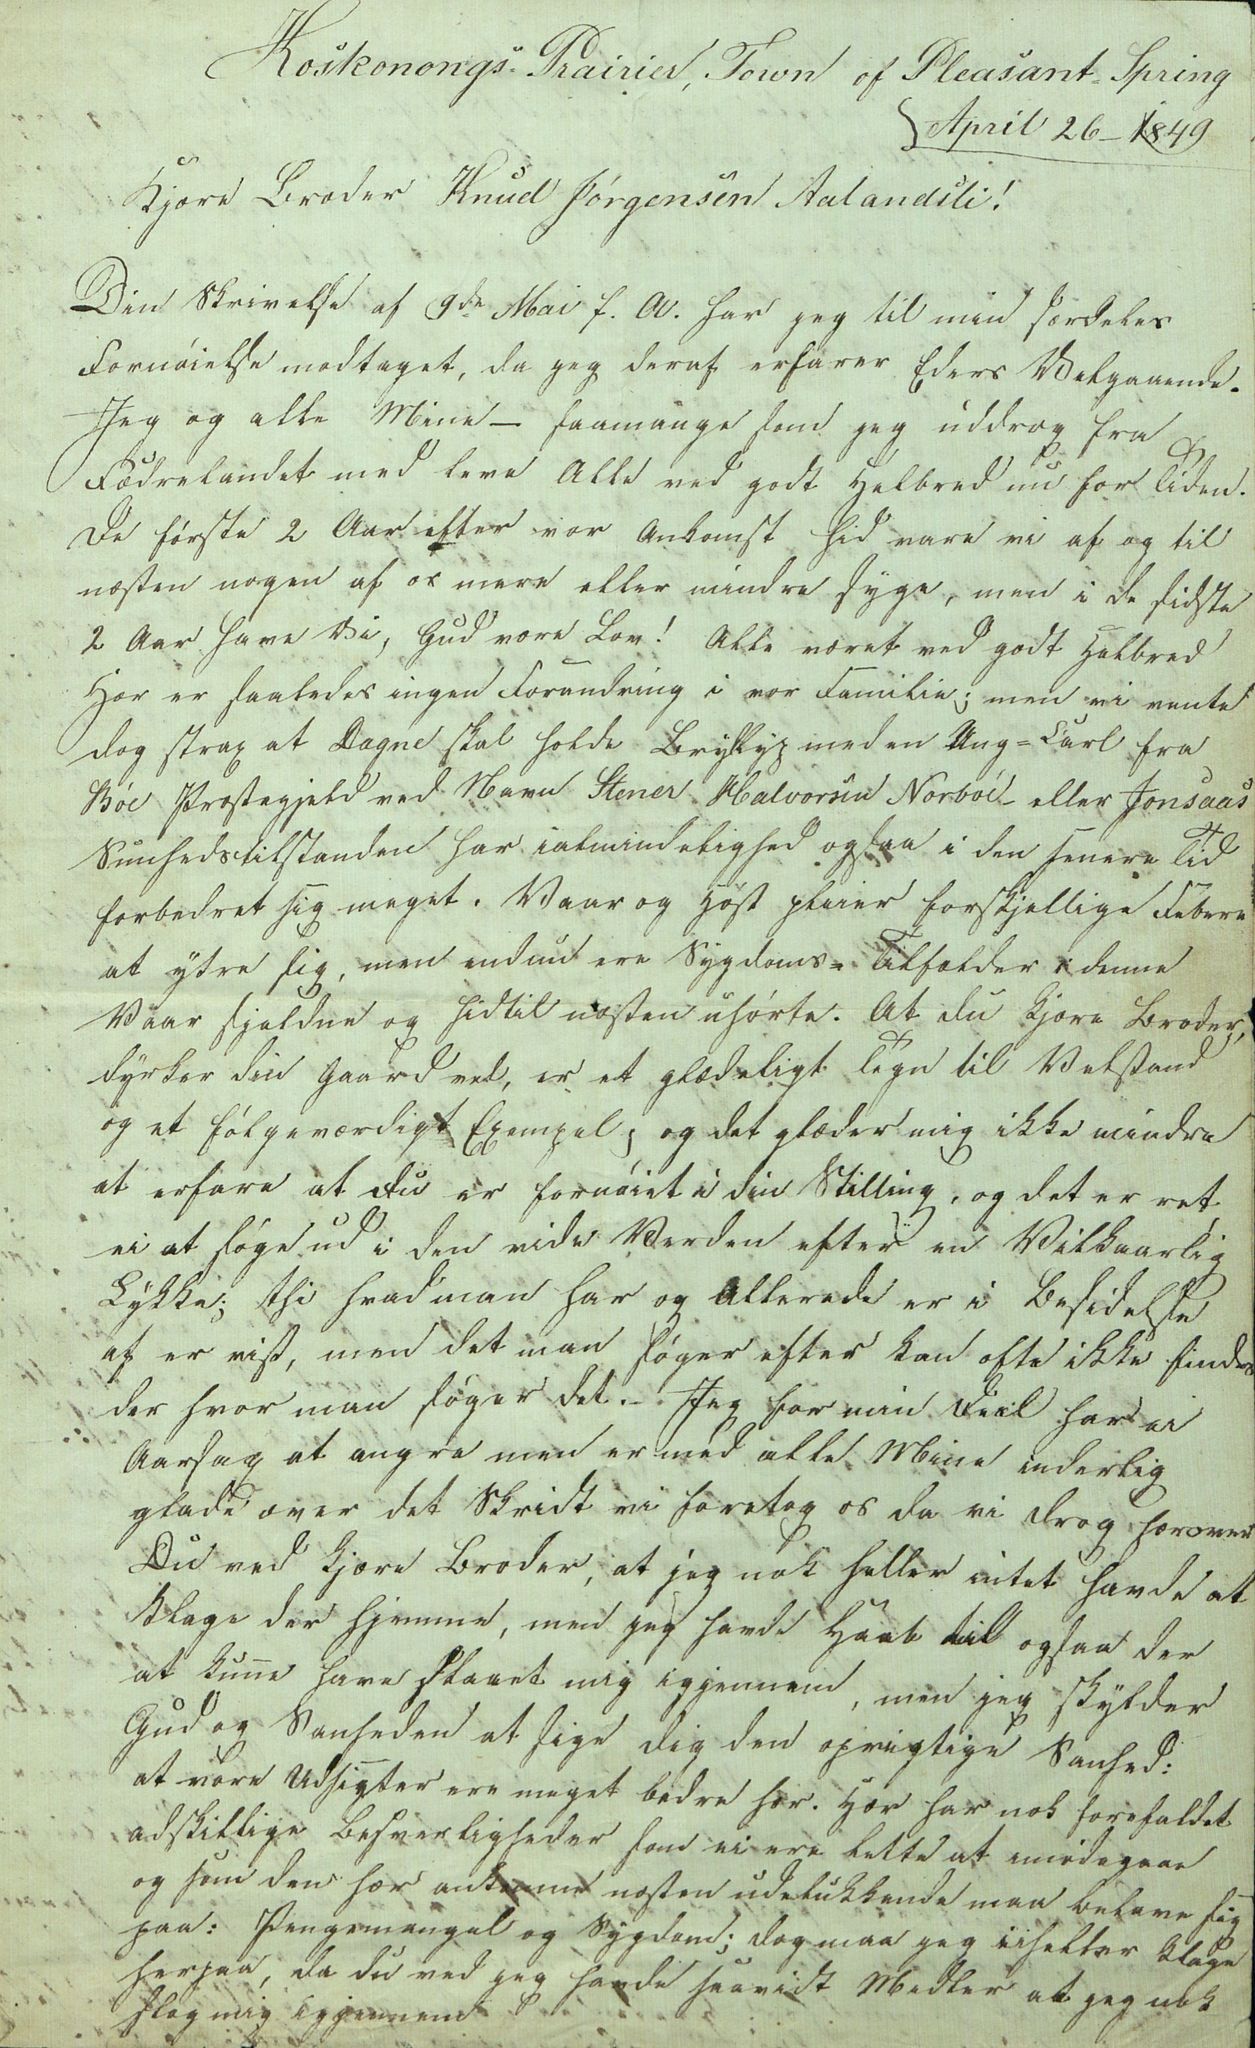 Koskonongs-Prairier, Town of Pleasant-Spring
April 26-1849
Kjære Broder Knud Jørgensen Aalandsli!
Din Skrivelse af 9de Mai f. A. har jeg til min særdeles
Fornøielse modtaget, da jeg deraf erfarer Eders Velgaaende.
Jeg og alle Mine — saamange som jeg uddrog fra
Fædrelandet med leve Alle ved godt Helbred nu for Tiden.
De første 2 Aar efter vor Ankomst hid vare vi af og til
næsten nogen af os mere eller mindre syge, men i de sidste
2 Aar have Vi, Gud være Lov! Alle været ved godt Helbred
Her er saaledes ingen Forandring i vor Familie; men vi vente
dog strax at Dagne skal holde Bryllup med en Ung-Karl fra
Bøe Præstegjeld ved Navn Stener Halvorsen Norbøe - eller Jonsaas
Sunhedstilstanden har ialmindelighed ogsaa i den senere Tid
forbedret sig meget. Vaar og Høst pleier forskjellige Febere
at ytre sig, men endnu ere Sygdoms-Tilfælder i denne
Vaar sjeldne og hidtil næsten uhørte. At du kjære Broder,
dyrker din Gaard vel, er et glædeligt Tegn til Velstand
og et følgeværdigt Exempel; og det glæder mig ikke mindre
at erfare at du er fornøiet i din Stilling, og det er ret
ei at søge ud i den vide Verden efter en Vilkaarlig
Lykke; thi hvad man har og allerede er i Besidelse
af er vist, men det man søger efter kan ofte ikke findes
der hvor man søger det. - Jeg for min Deel har ei
Aarsag at angre men er med alle Mine inderlig
glade over det Skridt vi foretog os da vi drog herover
Du ved kjære Broder, at jeg nok heller intet havde at
klage der hjemme, men jeg havde Haab til ogsaa der
at kunne have slaaet mig igjennem, men jeg skylder
Gud og Sanheden at sige dig den oprigtige Sanhed:
at vore Udsigter ere meget bedre her. Her har nok forefaldet
adskillige Besverligheder som ei ere lette at imødegaae
og som den her ankomne næsten udelukkende maa belave sig
paa: Pengemangel og Sygdom; dog maa jeg ei heller klage
herpaa, da du ved jeg havde saavidt Midler at jeg nok
slog mig igjennem